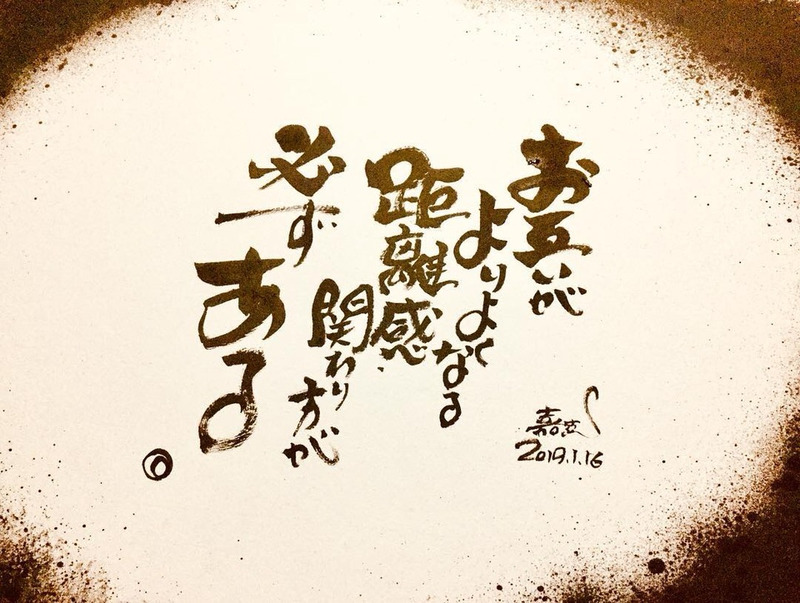 お互いが
よりよくなる
距離感、
関わり方が
必ず
ある。
2019.1.16